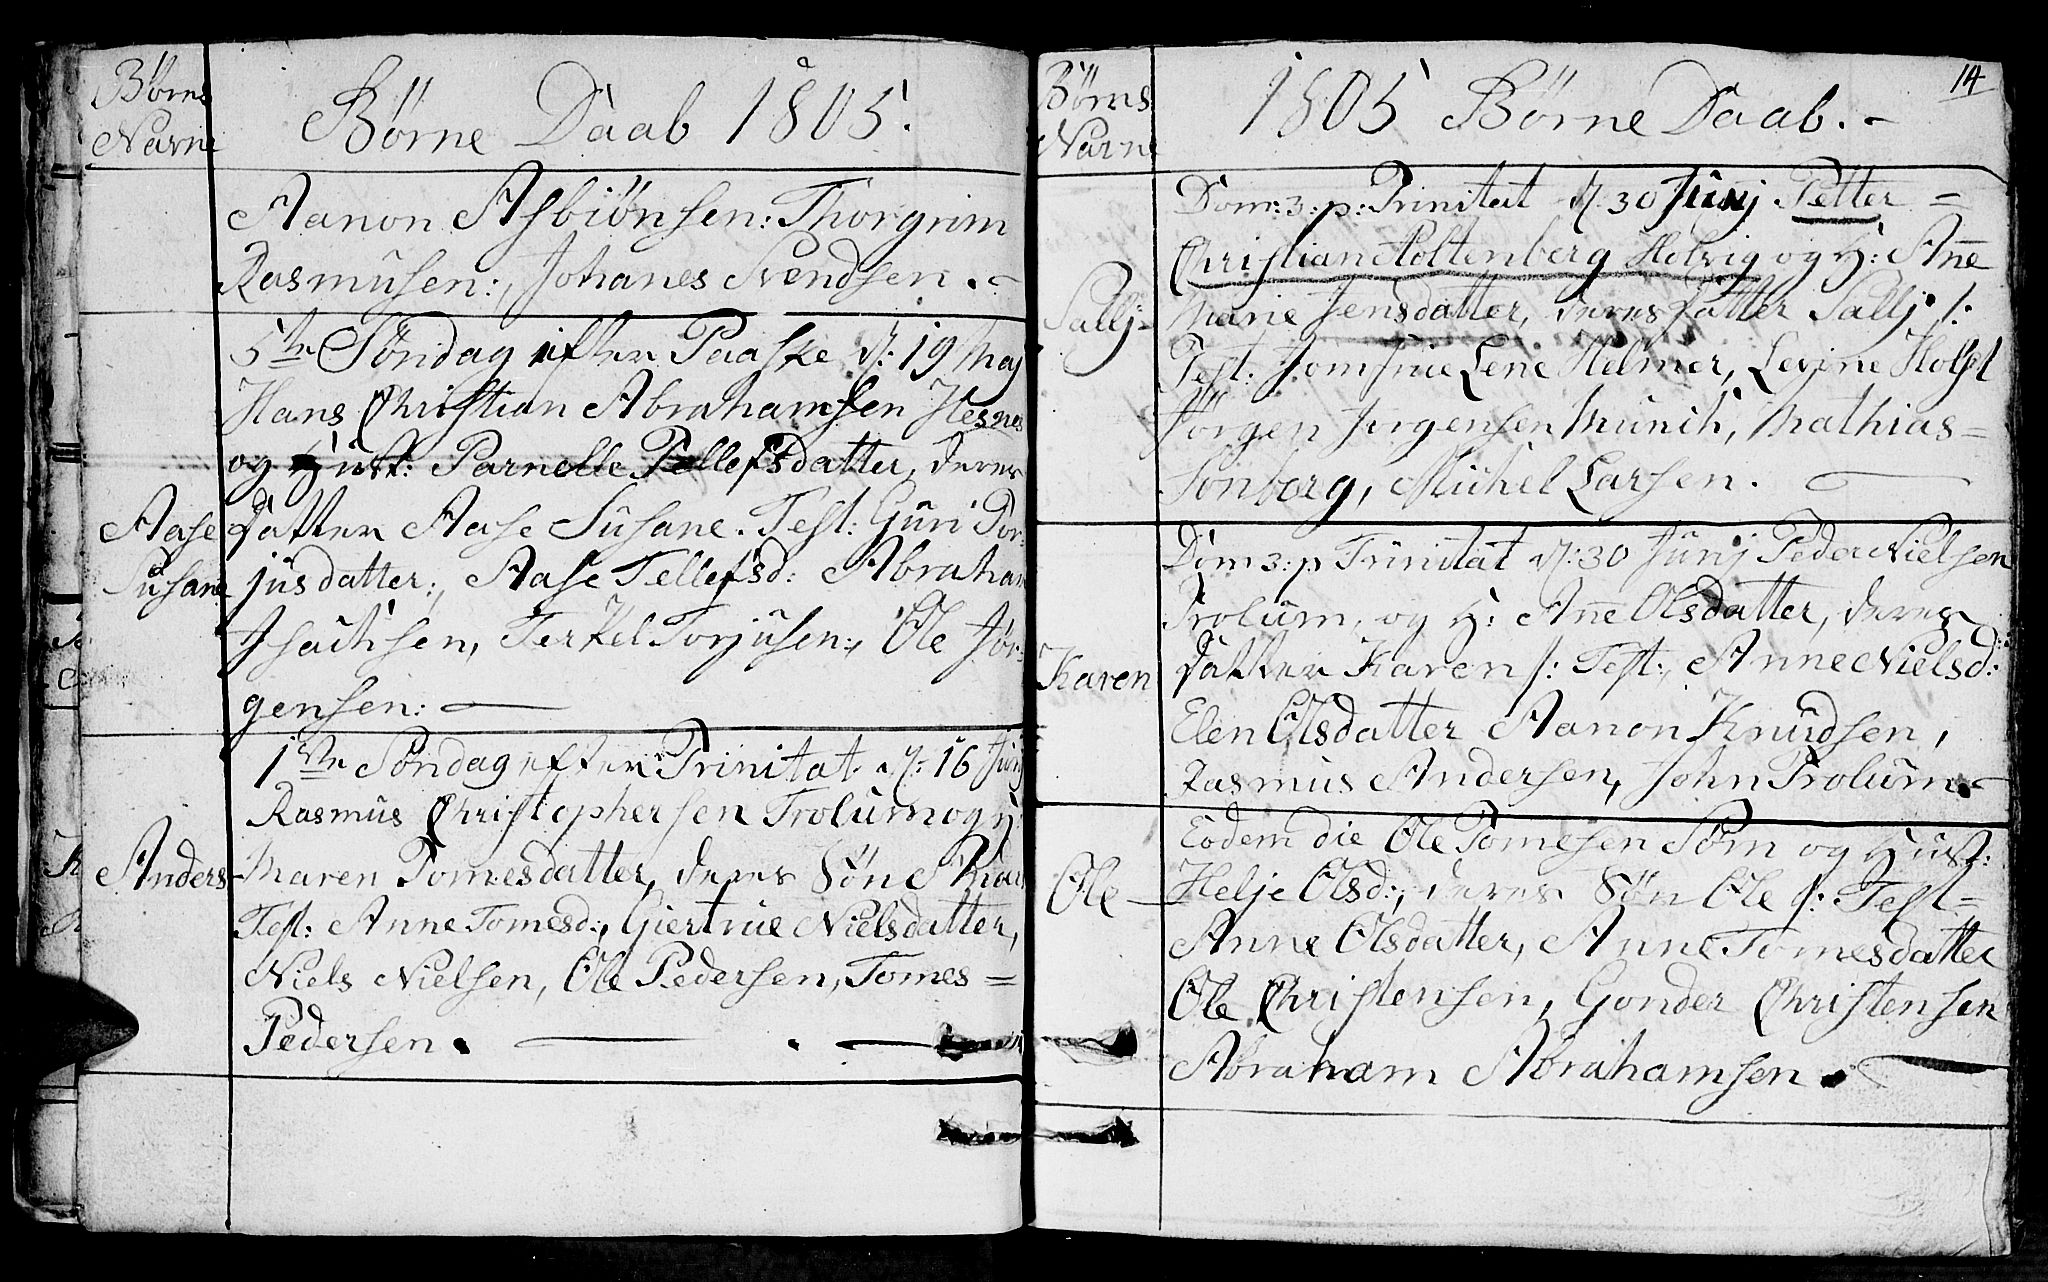 Børns
Navne
Børne Daab 1805.
Aanon Asbiønsen: Thorgrim
Rasmusen:, Johanes Svendsen.
5te Søndag efter Paaske d: 19 Maj
Hans Christian Abrahamsen Hesnes
og Hust: Parnelle Tellefsdatter, deres
Aase
Susane
Datter Aase Susane. Test: Guri Tor-
jusdatter:, Aase Tellefsd: Abraham
Isachsen, Terkel Torjusen:, Ole Jør-
gensen:
1ste Søndag efter Trinitat. d: 16 Junj
Rasmus Christophersen Trolum og H:
Anders
Maren Tomesdatter, deres Søn
Test: Anne Tomesd:, Giertrue Nielsdatter,
Niels Nielsen, Ole Pedersen, Tomes=
Pedersen.
14
Børns
Navne
1805 Børne Daab.
Dom: 3: p: Trinitat d. 30 Junj Petter=
Christian Holtenberg Helvig og H: Ane
Sallj
Marie Jensdatter, deres Datter Sallj /:
Test: Jomfrue Lene Helmer, Levine Holst
Jörgen Jörgensen Munch, Mathias=
Sönborg, Michel Larsen.
Dom 3: p Trinitat d: 30 Junj Peder Nielsen
Trolum, og H: Ane Olsdatter, deres
Karen
Datter Karen /: Test:, Anne Nielsd:
Elen Olsdatter Aanon Knudsen,
Rasmus Andersen, John Trolum.
Eodem die Ole Tomesen Søm og Hust:
Ole
Helje Olsd:, deres Søn Ole /: Test=
Anne Olsdatter, Anne Tomesdatter
Ole Christensen, Gonder Christensen
Abraham Abrahamsen.